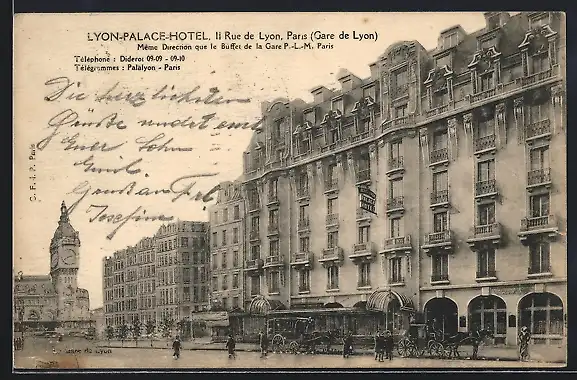 LYON-PALACE-HOTEL, 11 Rue de Lyon, Paris (Gare de Lyon)
Même Direction que le Buffet de la Gare P.-L.-M. Paris
Téléphone : Diderot 09-09 - 09-10
Télégrammes : Palalyon - Paris
Die herzlichsten
Grüsse sendet eine
Euer Sohn
Emil.
Gruss an Frl.
Josefine
C. F. I. P. Paris
Gare de Lyon